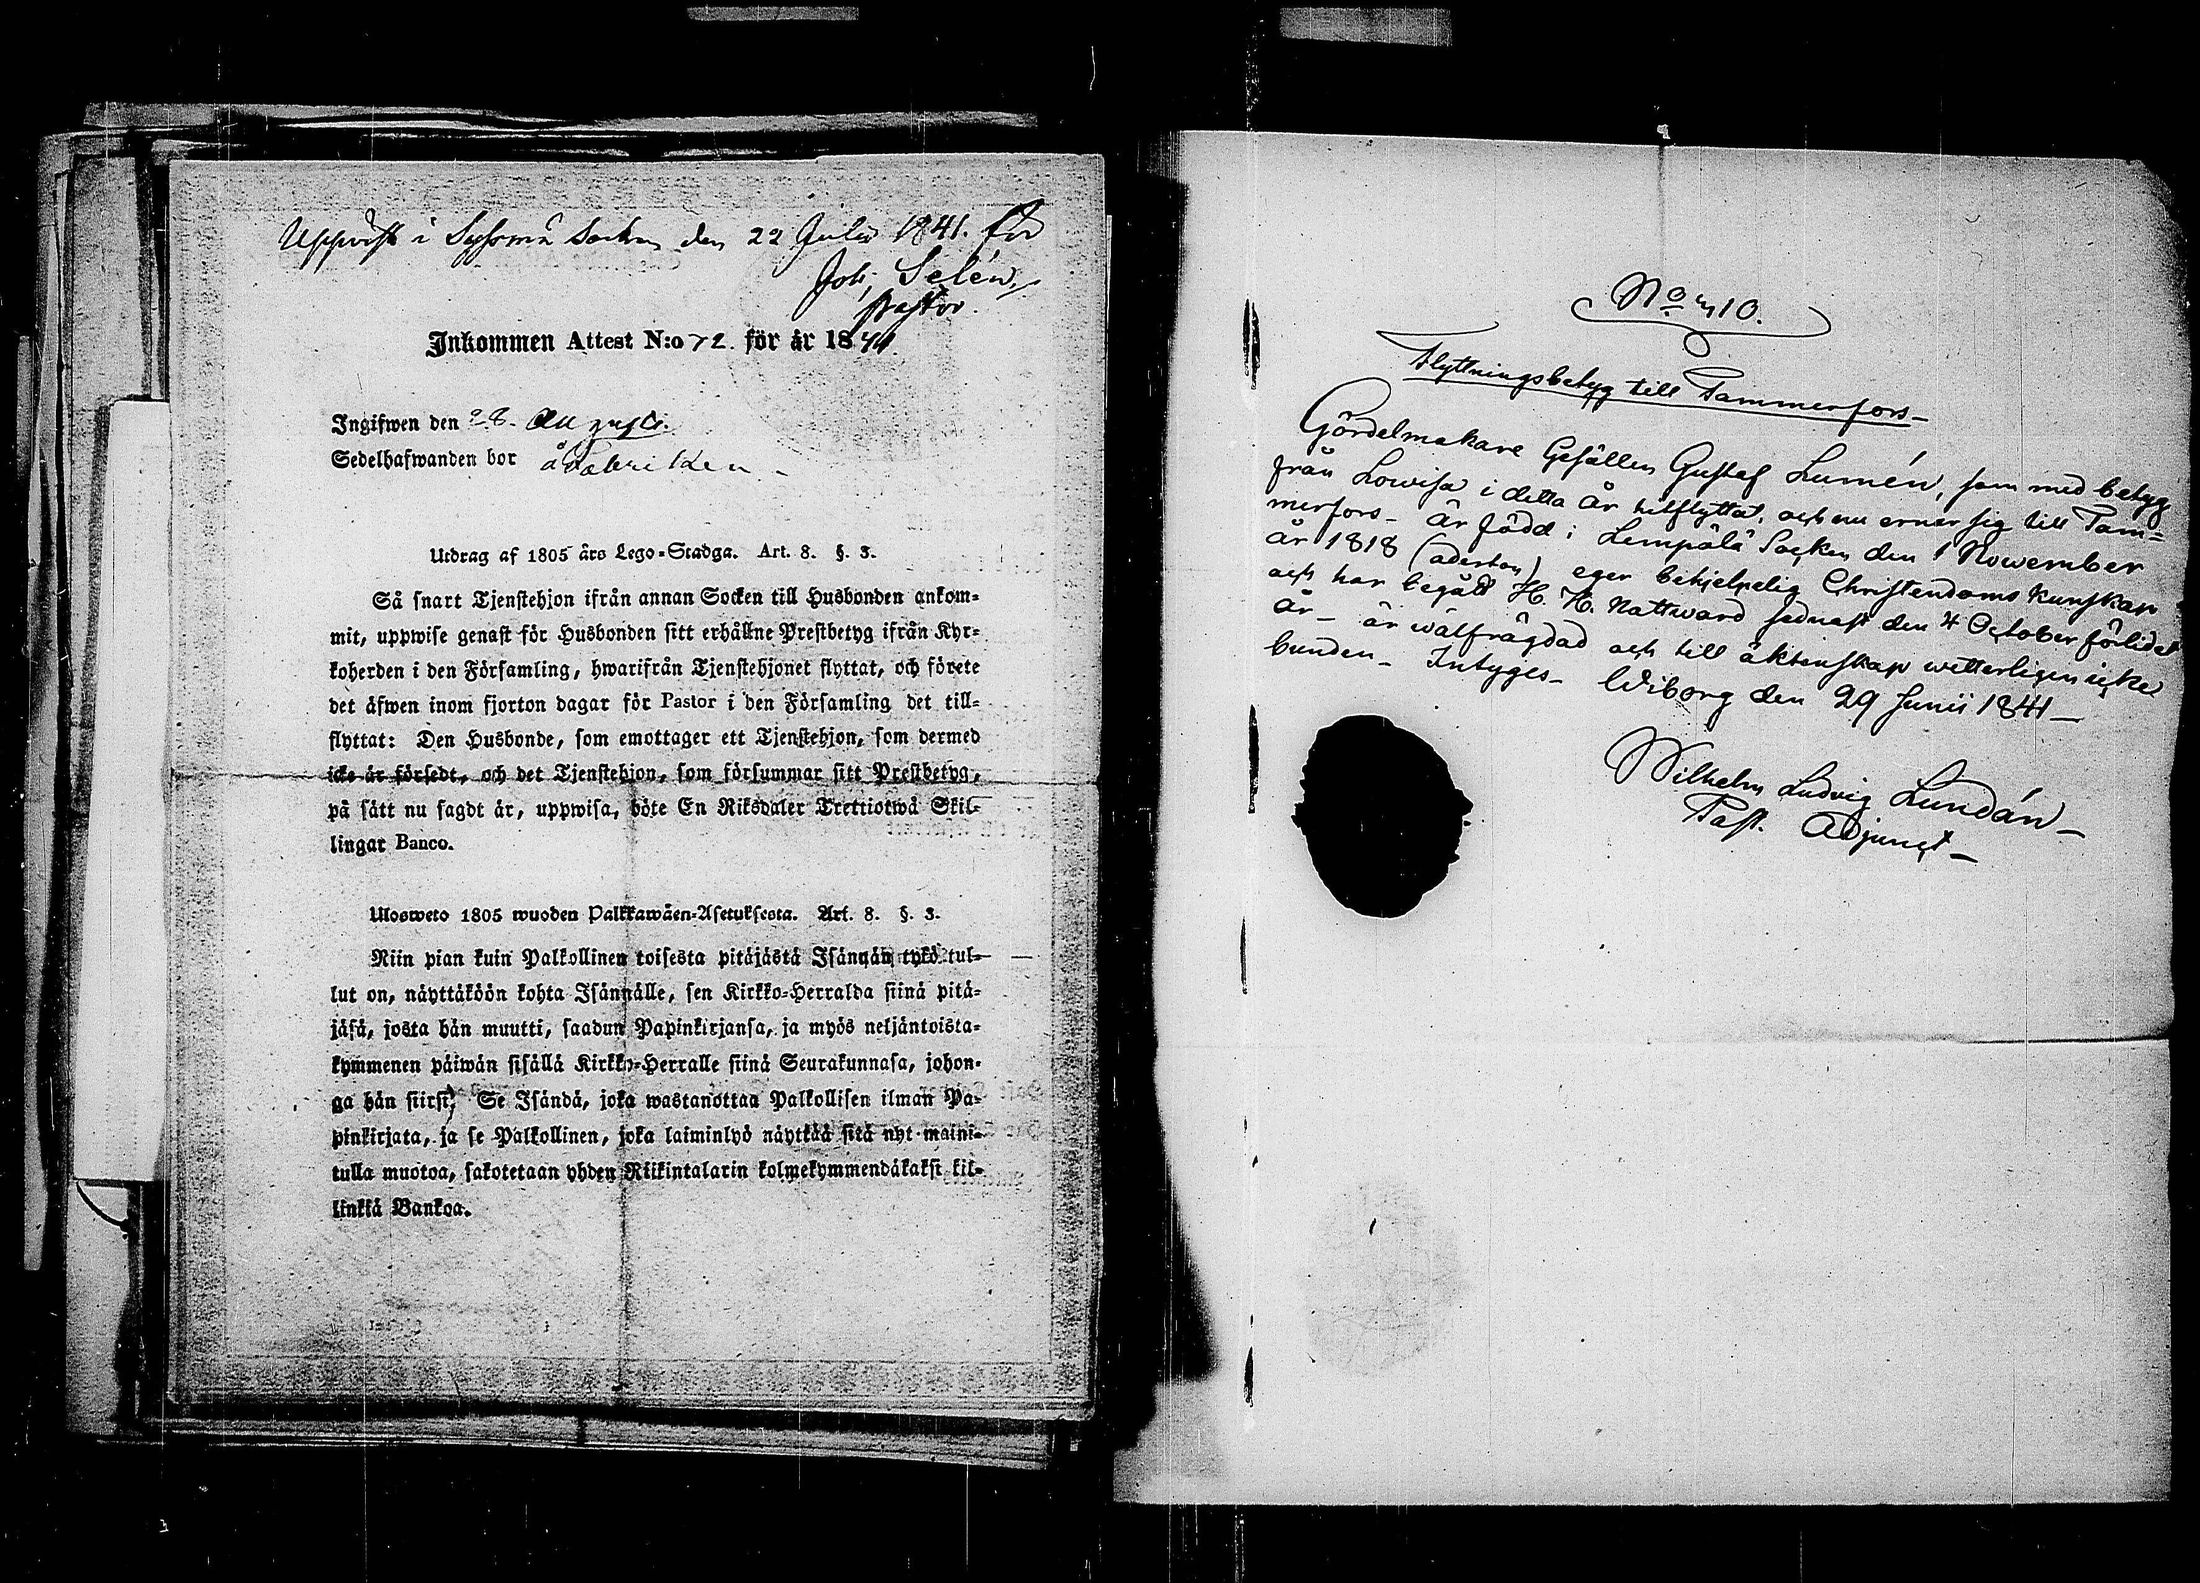 Uppvist i Sysmä Socken den 22 Julii 1841. för
Joh. Selén,
Pastor.
Inkommen Attest N:o 72. för år 1841
Ingifwen den 28. Augusti.
Sedelhafwanden bor å Fabriken
Utdrag af 1805 års Lego-Stadga. Art. 8. §. 3.
Så snart Tjenstehjon ifrån annan Socken till Husbonden ankom-
mit, uppwise genast för Husbonden sitt erhållne Prestbetyg ifrån Kyr-
koherden i den Församling, hwarifrån Tjenstehjonet flyttat, och förete
det äfwen inom fjorton dagar för Pastor i den Församling det till-
flyttat: Den Husbonde, som emottager ett Tjenstehjon, som dermed
icke är försedt, och det Tjenstehjon, som försummar sitt Prestbetyg,
på sätt nu sagdt är, uppwisa, böte En Riksdaler Trettiotwå Skil-
lingar Banco.
Ulosweto 1805 wuoden Palkkawäen-Asetuksesta. Art. 8. §. 3.
Niin pian kuin Palkollinen toisesta pitäjästä Isännän tykö tul-
lut on, näyttäköön kohta Isännälle, sen Kirkko-Herralda siinä pitä-
jäsä, josta hän muutti, saadun Papinkirjansa, ja myös neljäntoista-
kymmenen päiwän sisällä Kirkko-Herralle siinä Seurakunnasa, johon-
ga hän siirsi; Se Isändä, joka wastanottaa Palkollisen ilman Pa-
pinkirjata, ja se Palkollinen, joka laiminlyö näyttää sitä nyt maini-
tulla muotoa, sakotetaan yhden Riikintalarin kolmekymmendäkaksi kil-
linkiä Bankoa.
No 410.
Flyttningsbetyg till Tammerfors–
Gördelmakare Gesällen Gustaf Lumén, som med betyg
från Lowisa i detta år hitflyttat, och nu ernar sig till Tam=
merfors – är född i Lempälä Socken den 1 November
år 1818 (aderton) eger behjelpelig Christendoms kunskap
och har begått H. H. Nattward sednast den 4 October förlidet
år – är wälfrägdad och till äktenskap wetterligen icke
bunden – Intyges – Wiborg den 29 Junii 1841 –
Wilhelm Ludvig Lundán –
Past. Adjunct –